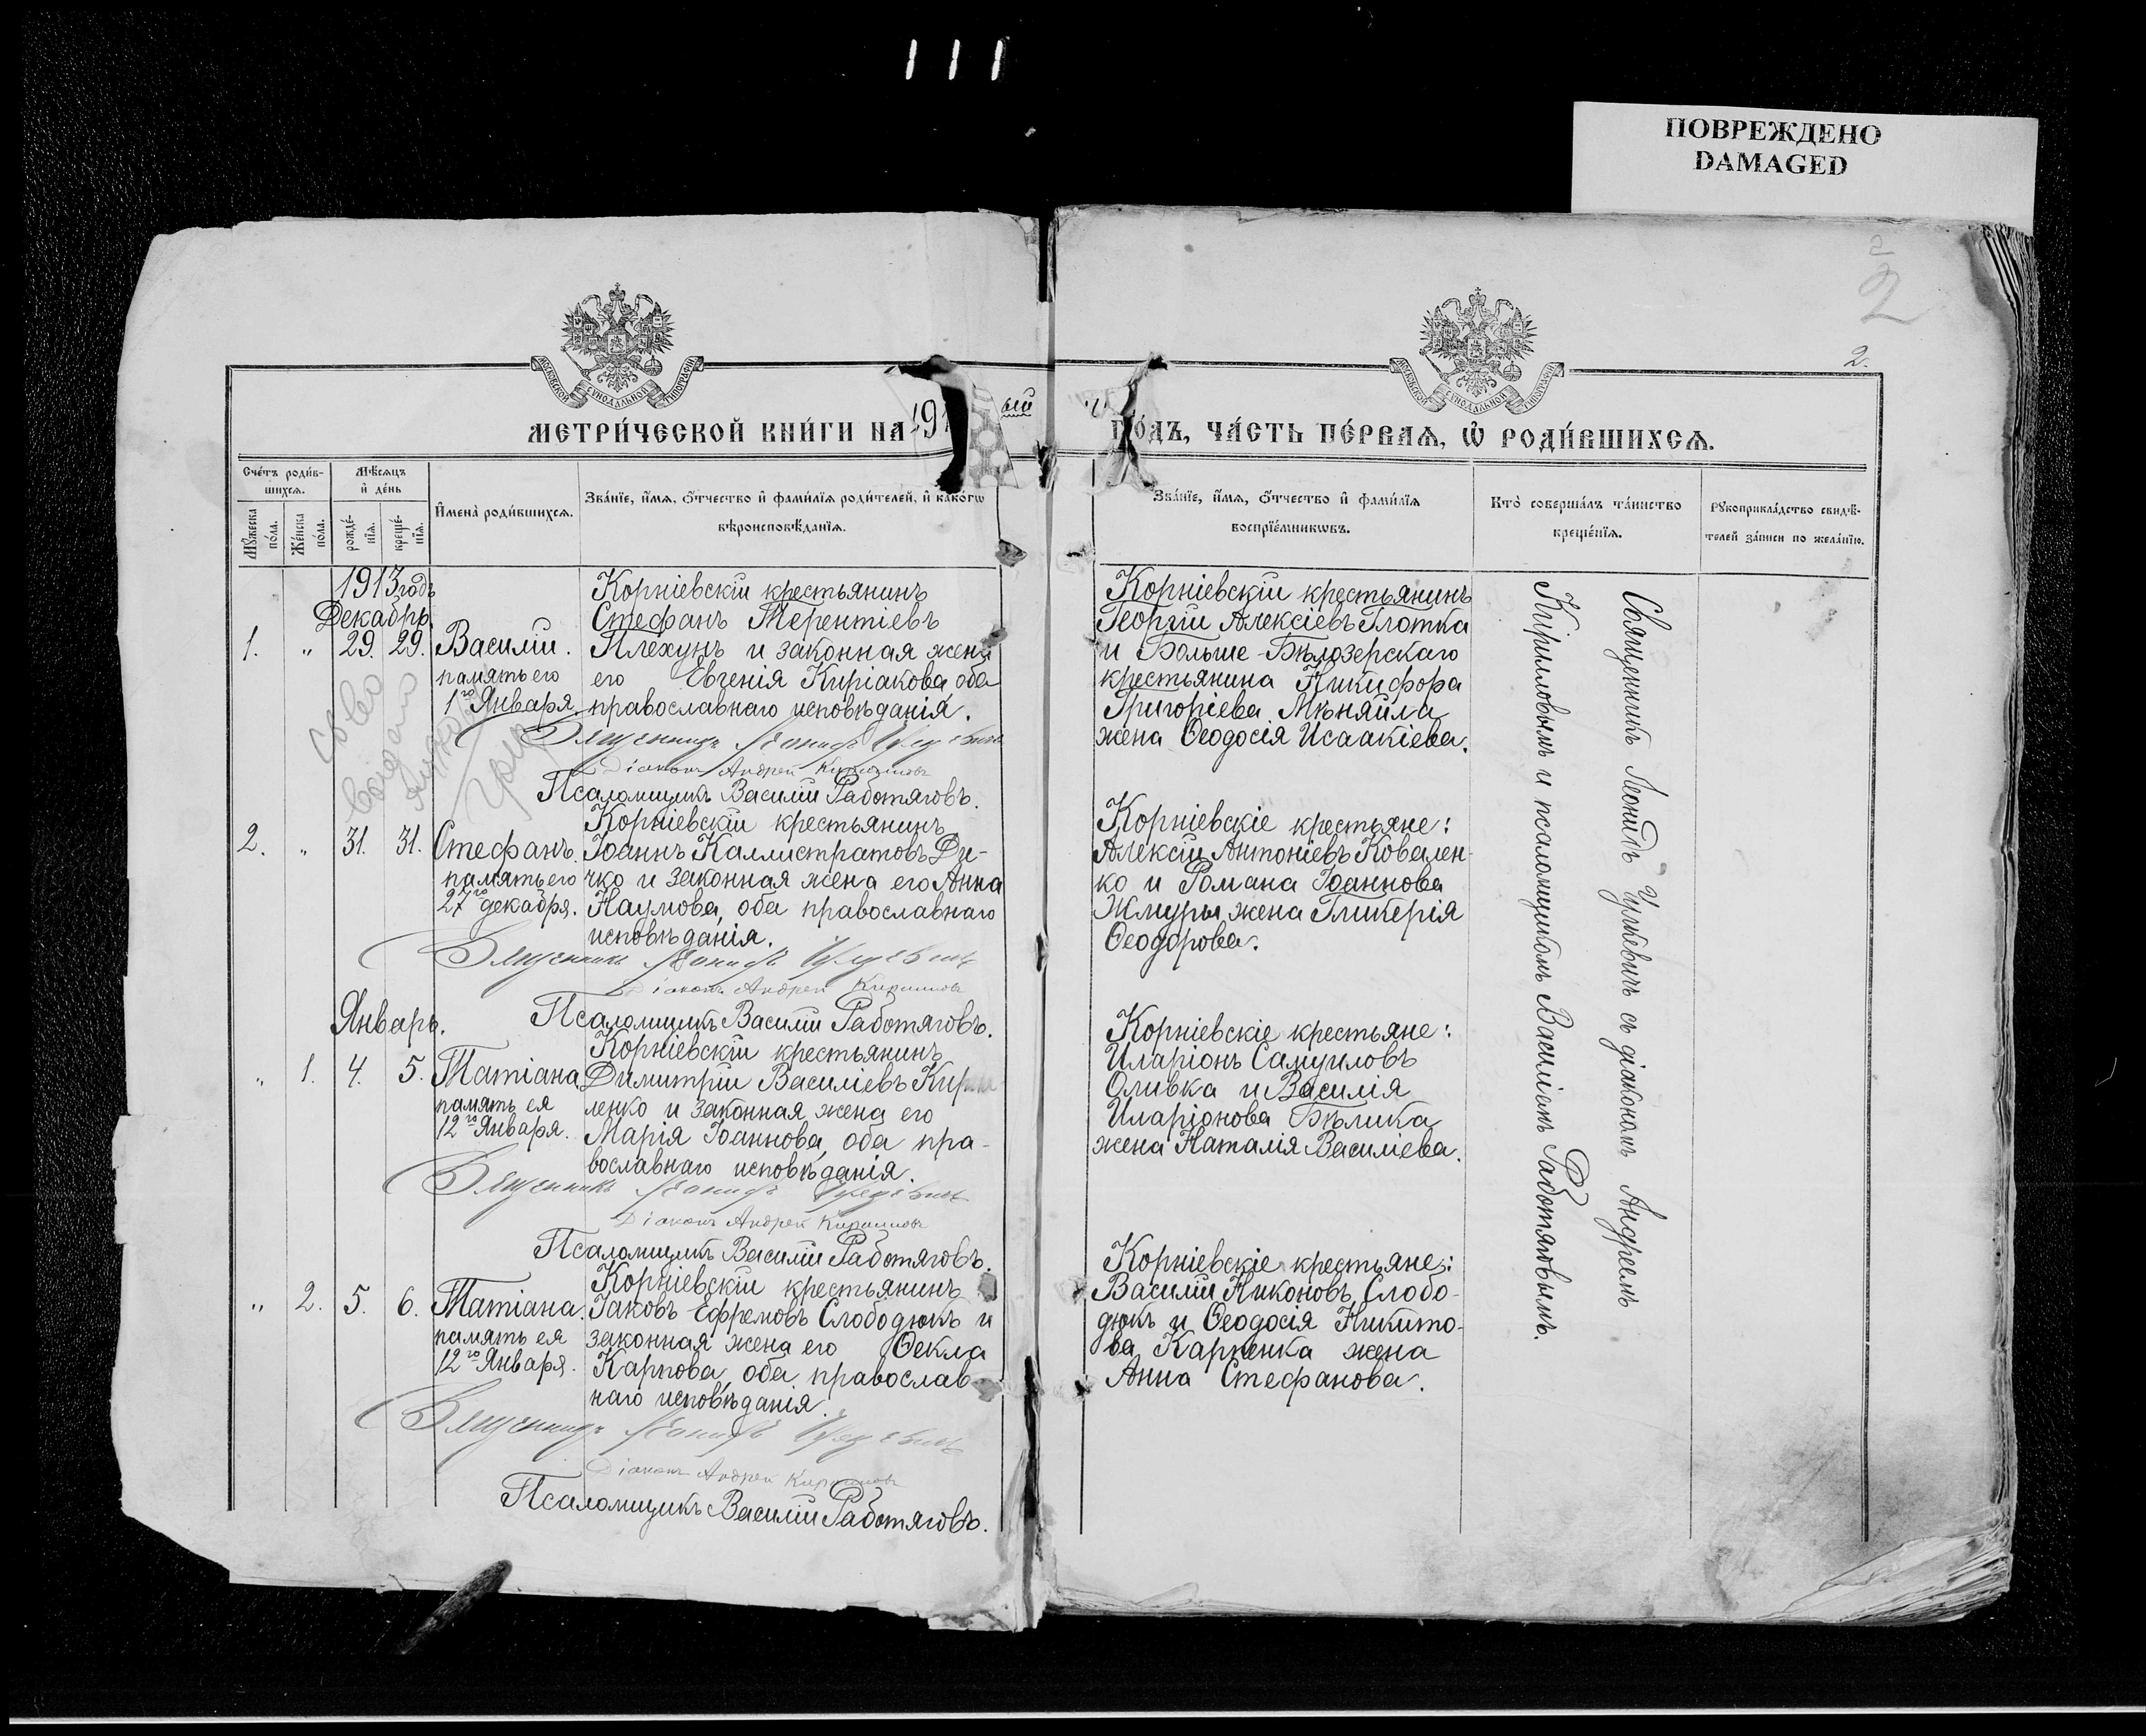 ПОВРЕЖДЕНО
DAMAGED
2
2.
МОСКОВСКОЙ СѴНОДАЛЬНОЙ ТИПОГРАФІИ
МОСКОВСКОЙ СѴНОДАЛЬНОЙ ТИПОГРАФІИ
МЕТРИ́ЧЕСКОЙ КНИ́ГИ НА 191 ый
ГО́ДЪ, ЧА́СТЬ ПЕ́РВАѦ, Ѡ҆ РОДИ́ВШИХСѦ.
Сче́тъ роди́в-
шихсѧ.
Мꙋ́жеска по́ла.
Же́нска по́ла.
Мѣ́сѧцъ
и҆ де́нь
рожде́-нїѧ.
креще́-нїѧ.
И҆мена̀ роди́вшихсѧ.
Зва́нїе, и҆́мѧ, ѻ҆́тчество и҆ фами́лїѧ роди́телей, и҆ како́гѡ
вѣроисповѣ́данїѧ.
Зва́нїе, и҆́мѧ, ѻ҆́тчество и҆ фами́лїѧ
воспрїе́мникѡвъ.
Кто̀ соверша́лъ та́инство
креще́нїѧ.
Рꙋкоприкла́дство свидѣ́-
телей за́писи по жела́нїю.
1913 годъ
Декабрь.
1. „ 29. 29. Василій.
память его
1го Января.
Корніевскій крестьянинъ
Стефанъ Терентіевъ
Плехунъ и законная жена
его Евгенія Киріакова оба
православнаго исповѣданія.
Священникъ Леонидъ
Діаконъ Андрей Кирилловъ
Псаломщикъ Василій Работяговъ.
Корніевскій крестьянинъ
Георгій Алексіевъ Глотка
и Больше-Бѣлозерскаго
крестьянина Никифора
Григоріева Мѣняйла
жена Ѳеодосія Исаакіева.
2. „ 31. 31. Стефанъ.
память его
27го декабря.
Корніевскій крестьянинъ
Іоаннъ Каллистратовъ Ди-
чко и законная жена его Анна
Наумова, оба православнаго
исповѣданія.
Священникъ Леонидъ
Діаконъ Андрей Кирилловъ
Псаломщикъ Василій Работяговъ.
Корніевскіе крестьяне:
Алексій Антоніевъ Ковален-
ко и Романа Іоаннова
Жмуры жена Гликерія
Ѳеодорова.
Январь.
„ 1. 4. 5. Татіана
память ея
12го Января.
Корніевскій крестьянинъ
Димитрій Василіевъ
ленко и законная жена его
Марія Іоаннова, оба пра-
вославнаго исповѣданія.
Священникъ Леонидъ
Діаконъ Андрей Кирилловъ
Псаломщикъ Василій Работяговъ.
Корніевскіе крестьяне:
Иларіонъ Самуиловъ
Оливка и Василія
Иларіонова Бѣлика
жена Наталія Василіева.
„ 2. 5. 6. Татіана.
память ея
12го Января.
Корніевскій крестьянинъ
Іаковъ Ефремовъ Слободюкъ и
законная жена его Ѳекла
Карпова, оба православ-
наго исповѣданія.
Священникъ Леонидъ
Діаконъ Андрей Кирилловъ
Псаломщикъ Василій Работяговъ.
Корніевскіе крестьяне:
Василій Никоновъ Слобо-
дюкъ и Ѳеодосія Никито-
ва Карпенка жена
Анна Стефанова.
Священникъ Леонидъ съ діакономъ Андреемъ
Кирилловымъ и псаломщикомъ Василіемъ Работяговымъ.